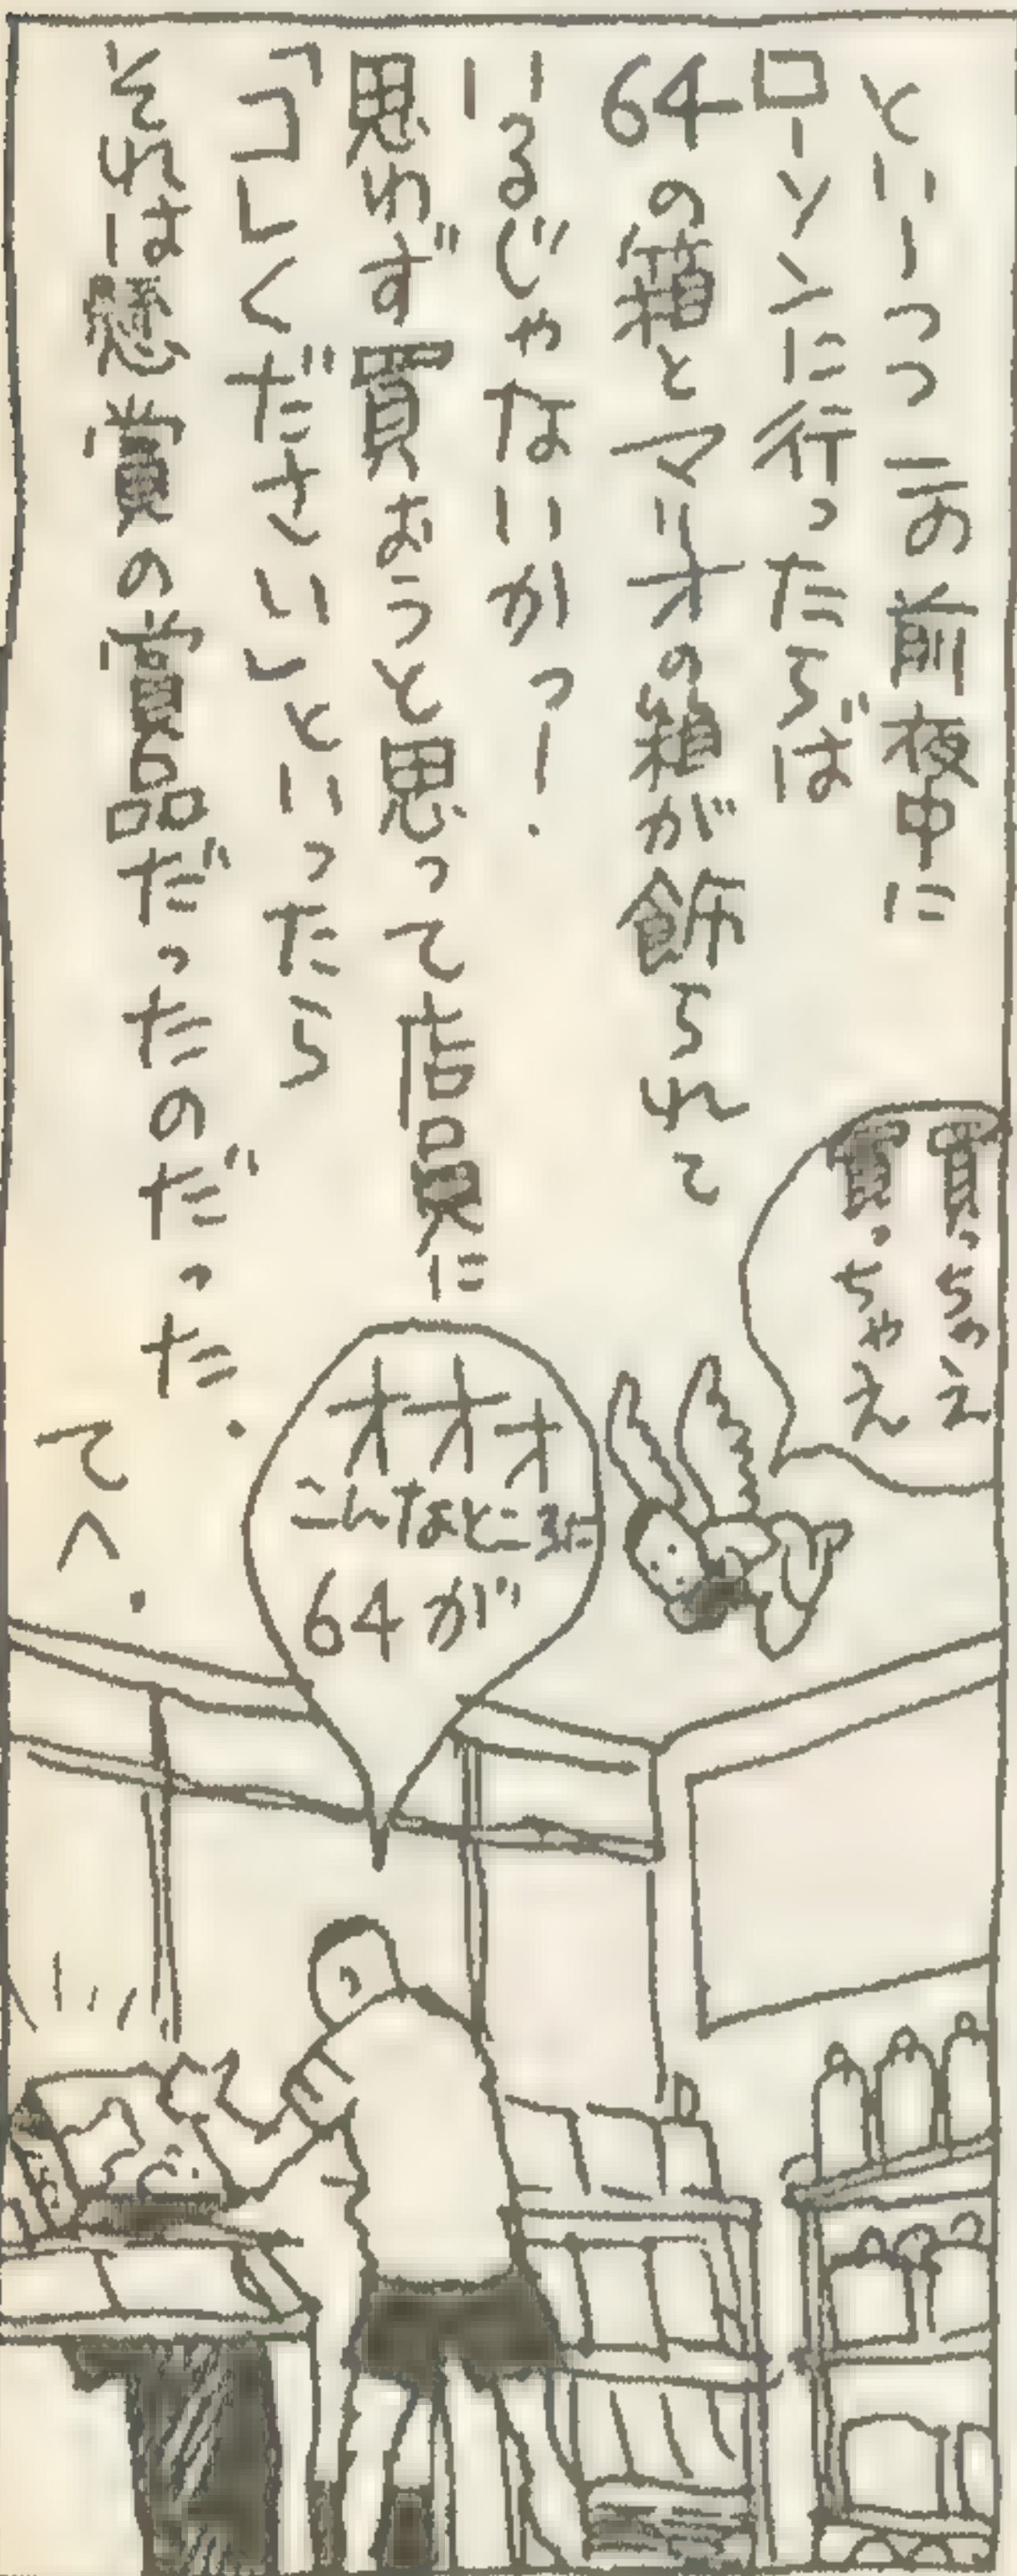 といーつつこの前夜中に
ローソンに行ったらば
64の箱とマリオの箱が飾られて
いるじゃないかっ！
思わず買おうと思って店員に
「コレください」といったら
それは懸賞の賞品だったのだった.
てへ.
買っちゃえ
買っちゃえ
オオォ
こんなところに
64が